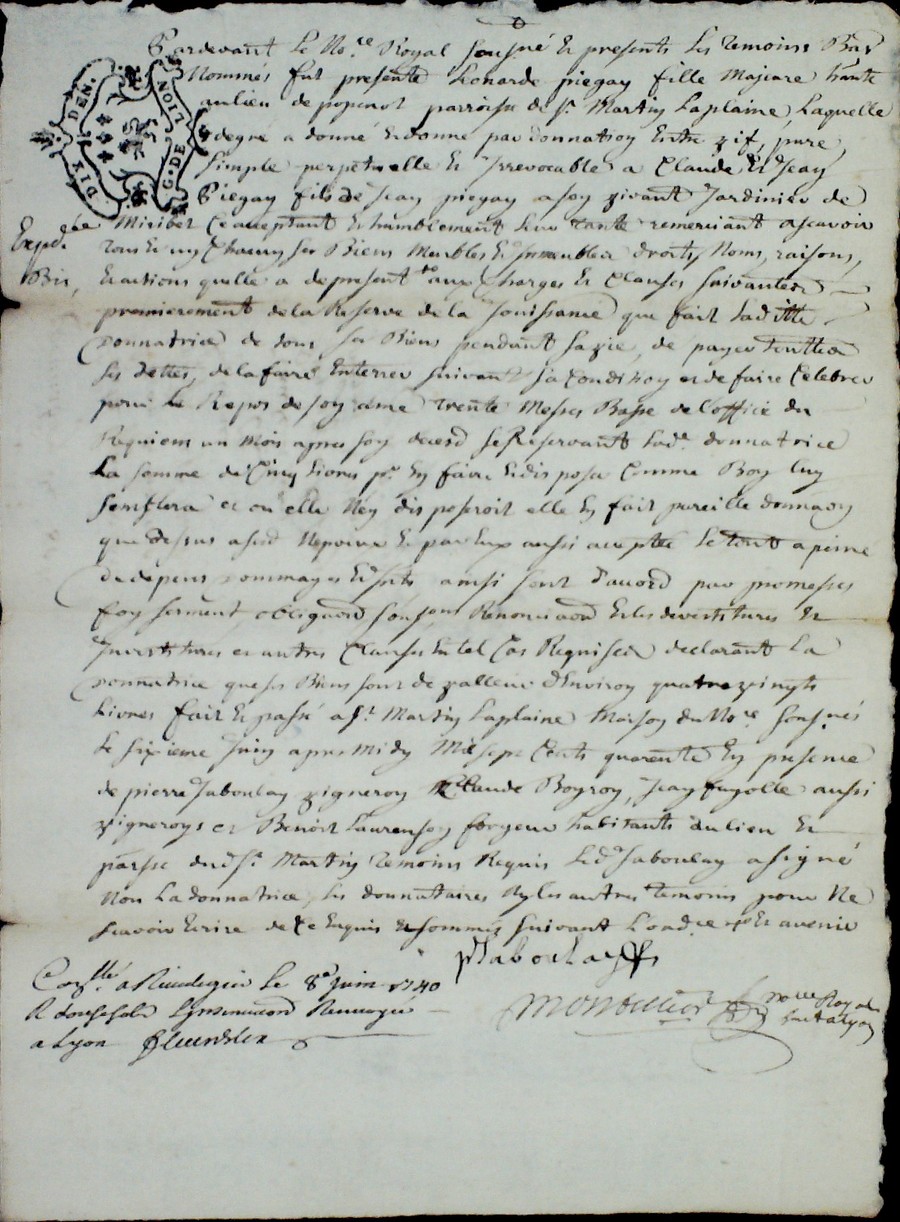 Pardevant Le No.re Royal sousigné Et presents Les Temoins Bas
Nommés fut presente Leonarde piegay fille Majeure hante
au lieu de popenot parroisse de St. Martin Laplaine Laquelle
degré a donné Et donne par donnation Entre vif, pure,
simple perpetuelle Et Irrevocable a Claude Et Jean
Piegay fils de Jean piegay a son vivant Jardinier de
Miribel Ce acceptant Et humblement Leur Tante remerciant ascavoir
Tous Et un Chacun ses Biens Meubles Et Immeubles droits, Noms, raisons,
Et actions qu'elle a de present aux Charges Et Clauses suivantes
premierement de la Reserve de la Jouissance que fait laditte
donnatrice de tous ses Biens pendant sa vie, de payer touttes
ses dettes, de la faire Enterrer suivant sa Condition et de faire Celebrer
pour Le Repos de son ame trente Messes Basse de l'office du
Requiem un Mois apres son deced se Reservant lad. donnatrice
La somme de Cinq Livres pr. En faire Et dispose Comme Bon luy
semblera et ou elle N'en disposeroit elle En fait pareille donnaon
que dessus asd. Nepveux Et par Eux aussi acceptée Le tout a peine
de depens dommages Et Jnts ainsi sont d'accord par promesses
foy serment obligaon sousmon Renonciaon Et les devestitures Et
Investitures et autres Clauses En tel Cas Requises declarant La
donnatrice que ses Biens sont de valleur d'Environ quatrevingts
Livres fait Et passé a St. Martin Laplaine Maison du No.re sousignés
Le sixieme Juin apres midy Mil sept Cents quarente En presence
de pierre Jaboulay vigneron Claude Boyron, Jean fayolle aussi
vignerons et Benoit Laurenson habitants du lieu Et
parsse dud. St. Martin Temoins Requis Led. Jaboulay a signé
Non La donnatrice, Les donnataires Ny les autres temoins pour Ne
scavoir Ecrire de Ce Enquis Et sommés suivant L'ord.ce Et avenir
P Jaboulay
Expediée
Bis,
DIX DEN.
G. DE LION
Con.llé a Rivedegier Le 8e. juin 1740
R douse sols Linsinuaon Renvoyée
a Lyon
Montellier no.re Royal